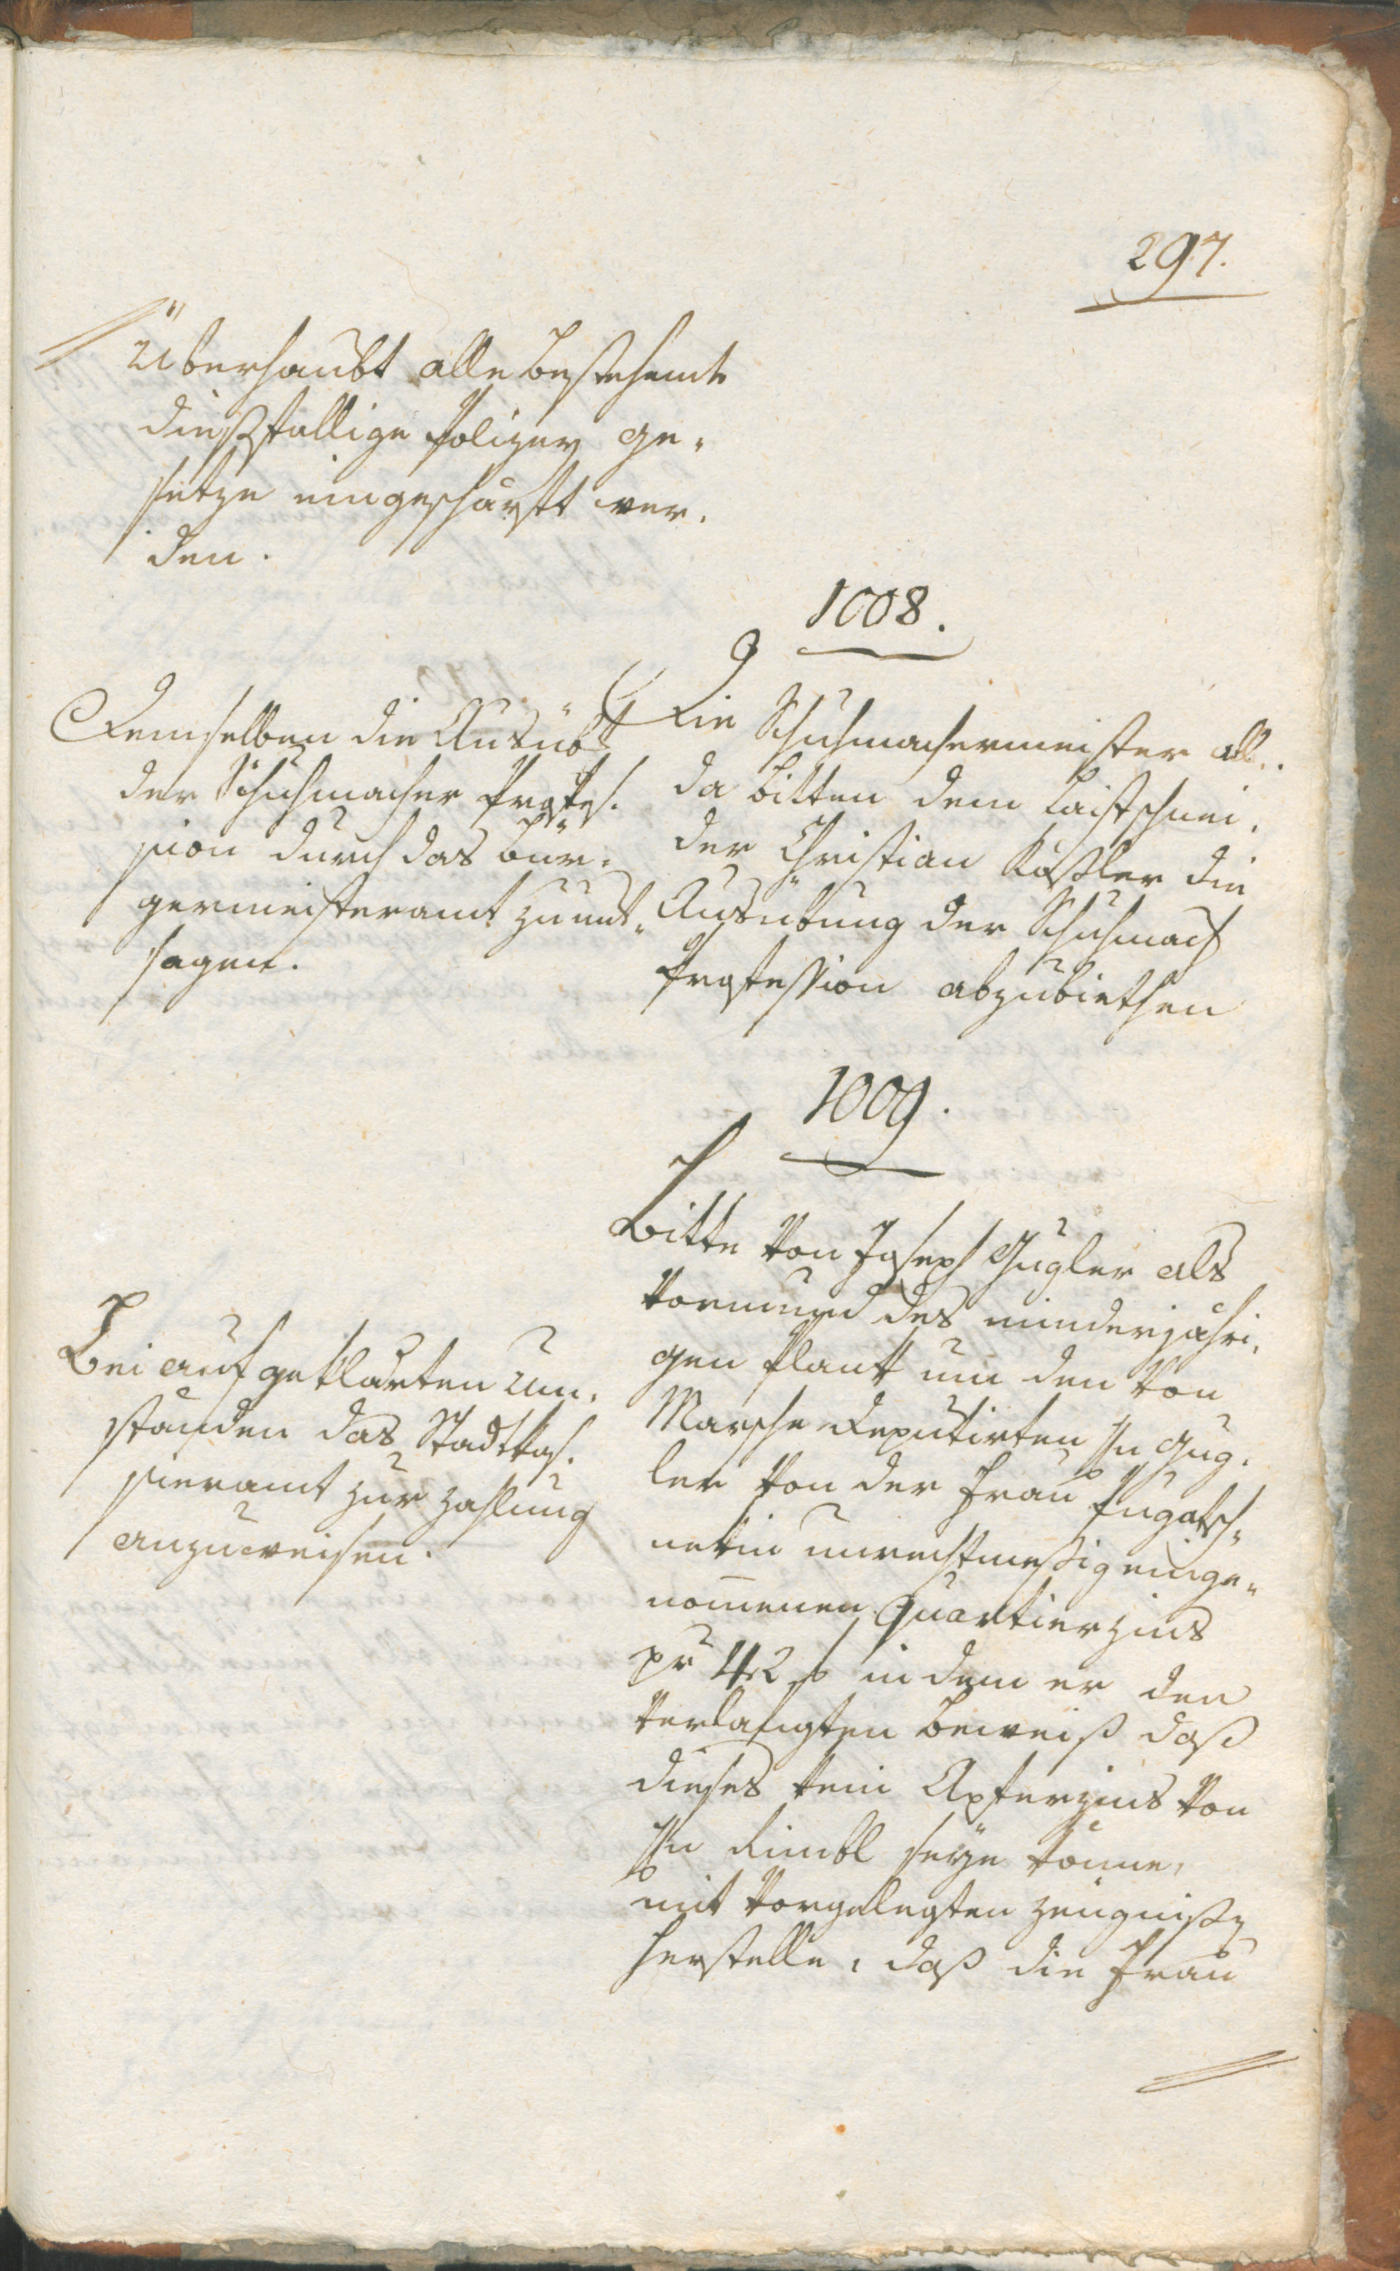 297.
Uberhaubt alle bestehende
dießfallige Polizey ge-
setze eingeschärft wer-
den.
1008.
Die Schuhmachermeister all-
da bitten dem Laistschnei-
der Christian Kaßler die
Ausübung der Schuhmach
Profession abzubiethen
Demselben die Ausüb
der Schuhmacher Profes-
sion durch das Bür-
germeisteramt zu unt-
sagen.
1009.
Bitte von Joseph Gugler als
Vormund des minderjähri-
gen Plank um den von
Marsche Deputirten Hn Gug-
ler von der Frau
unrechtmeßig einge-
nommenen Quartierzins
pr 42 f in dem er den
verlangten Beweiß daß
dieses kein Afterzins von
Hn Kimbl seye könne,
mit vorgelegten Zeugniße
herstelle, daß die Frau
Bei aufgeklärten Um-
ständen das Stadtkas-
sieramt zur Zahlung
anzuweisen.